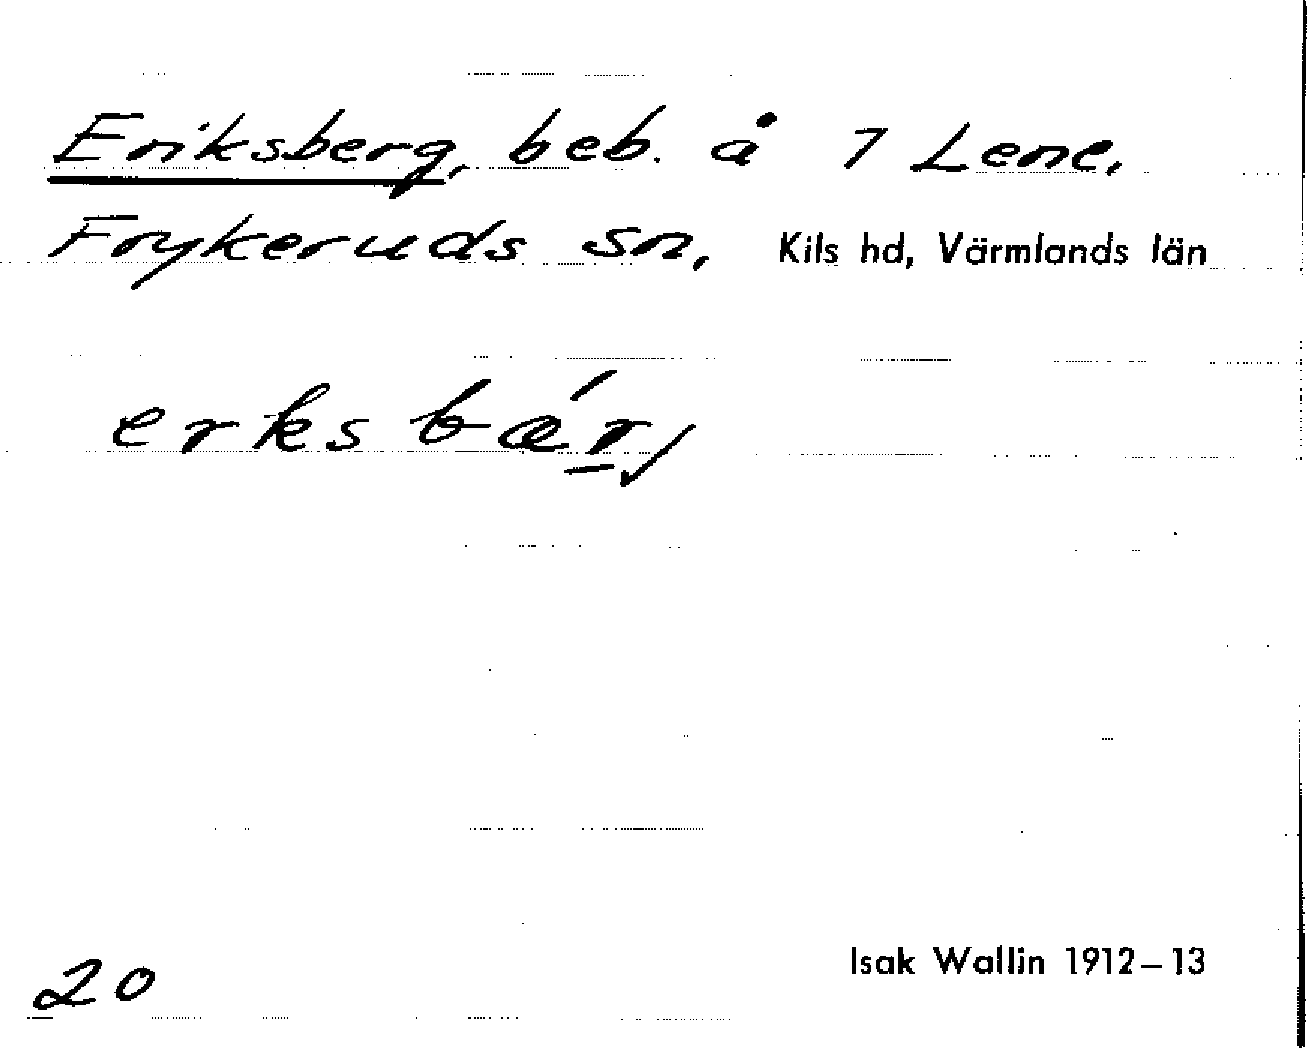 Eriksberg, beb. å 7 Lene,
Frykeruds sn, Kils hd, Värmlands län
erksbǽr̲
Isak Wallin 1912–13
20